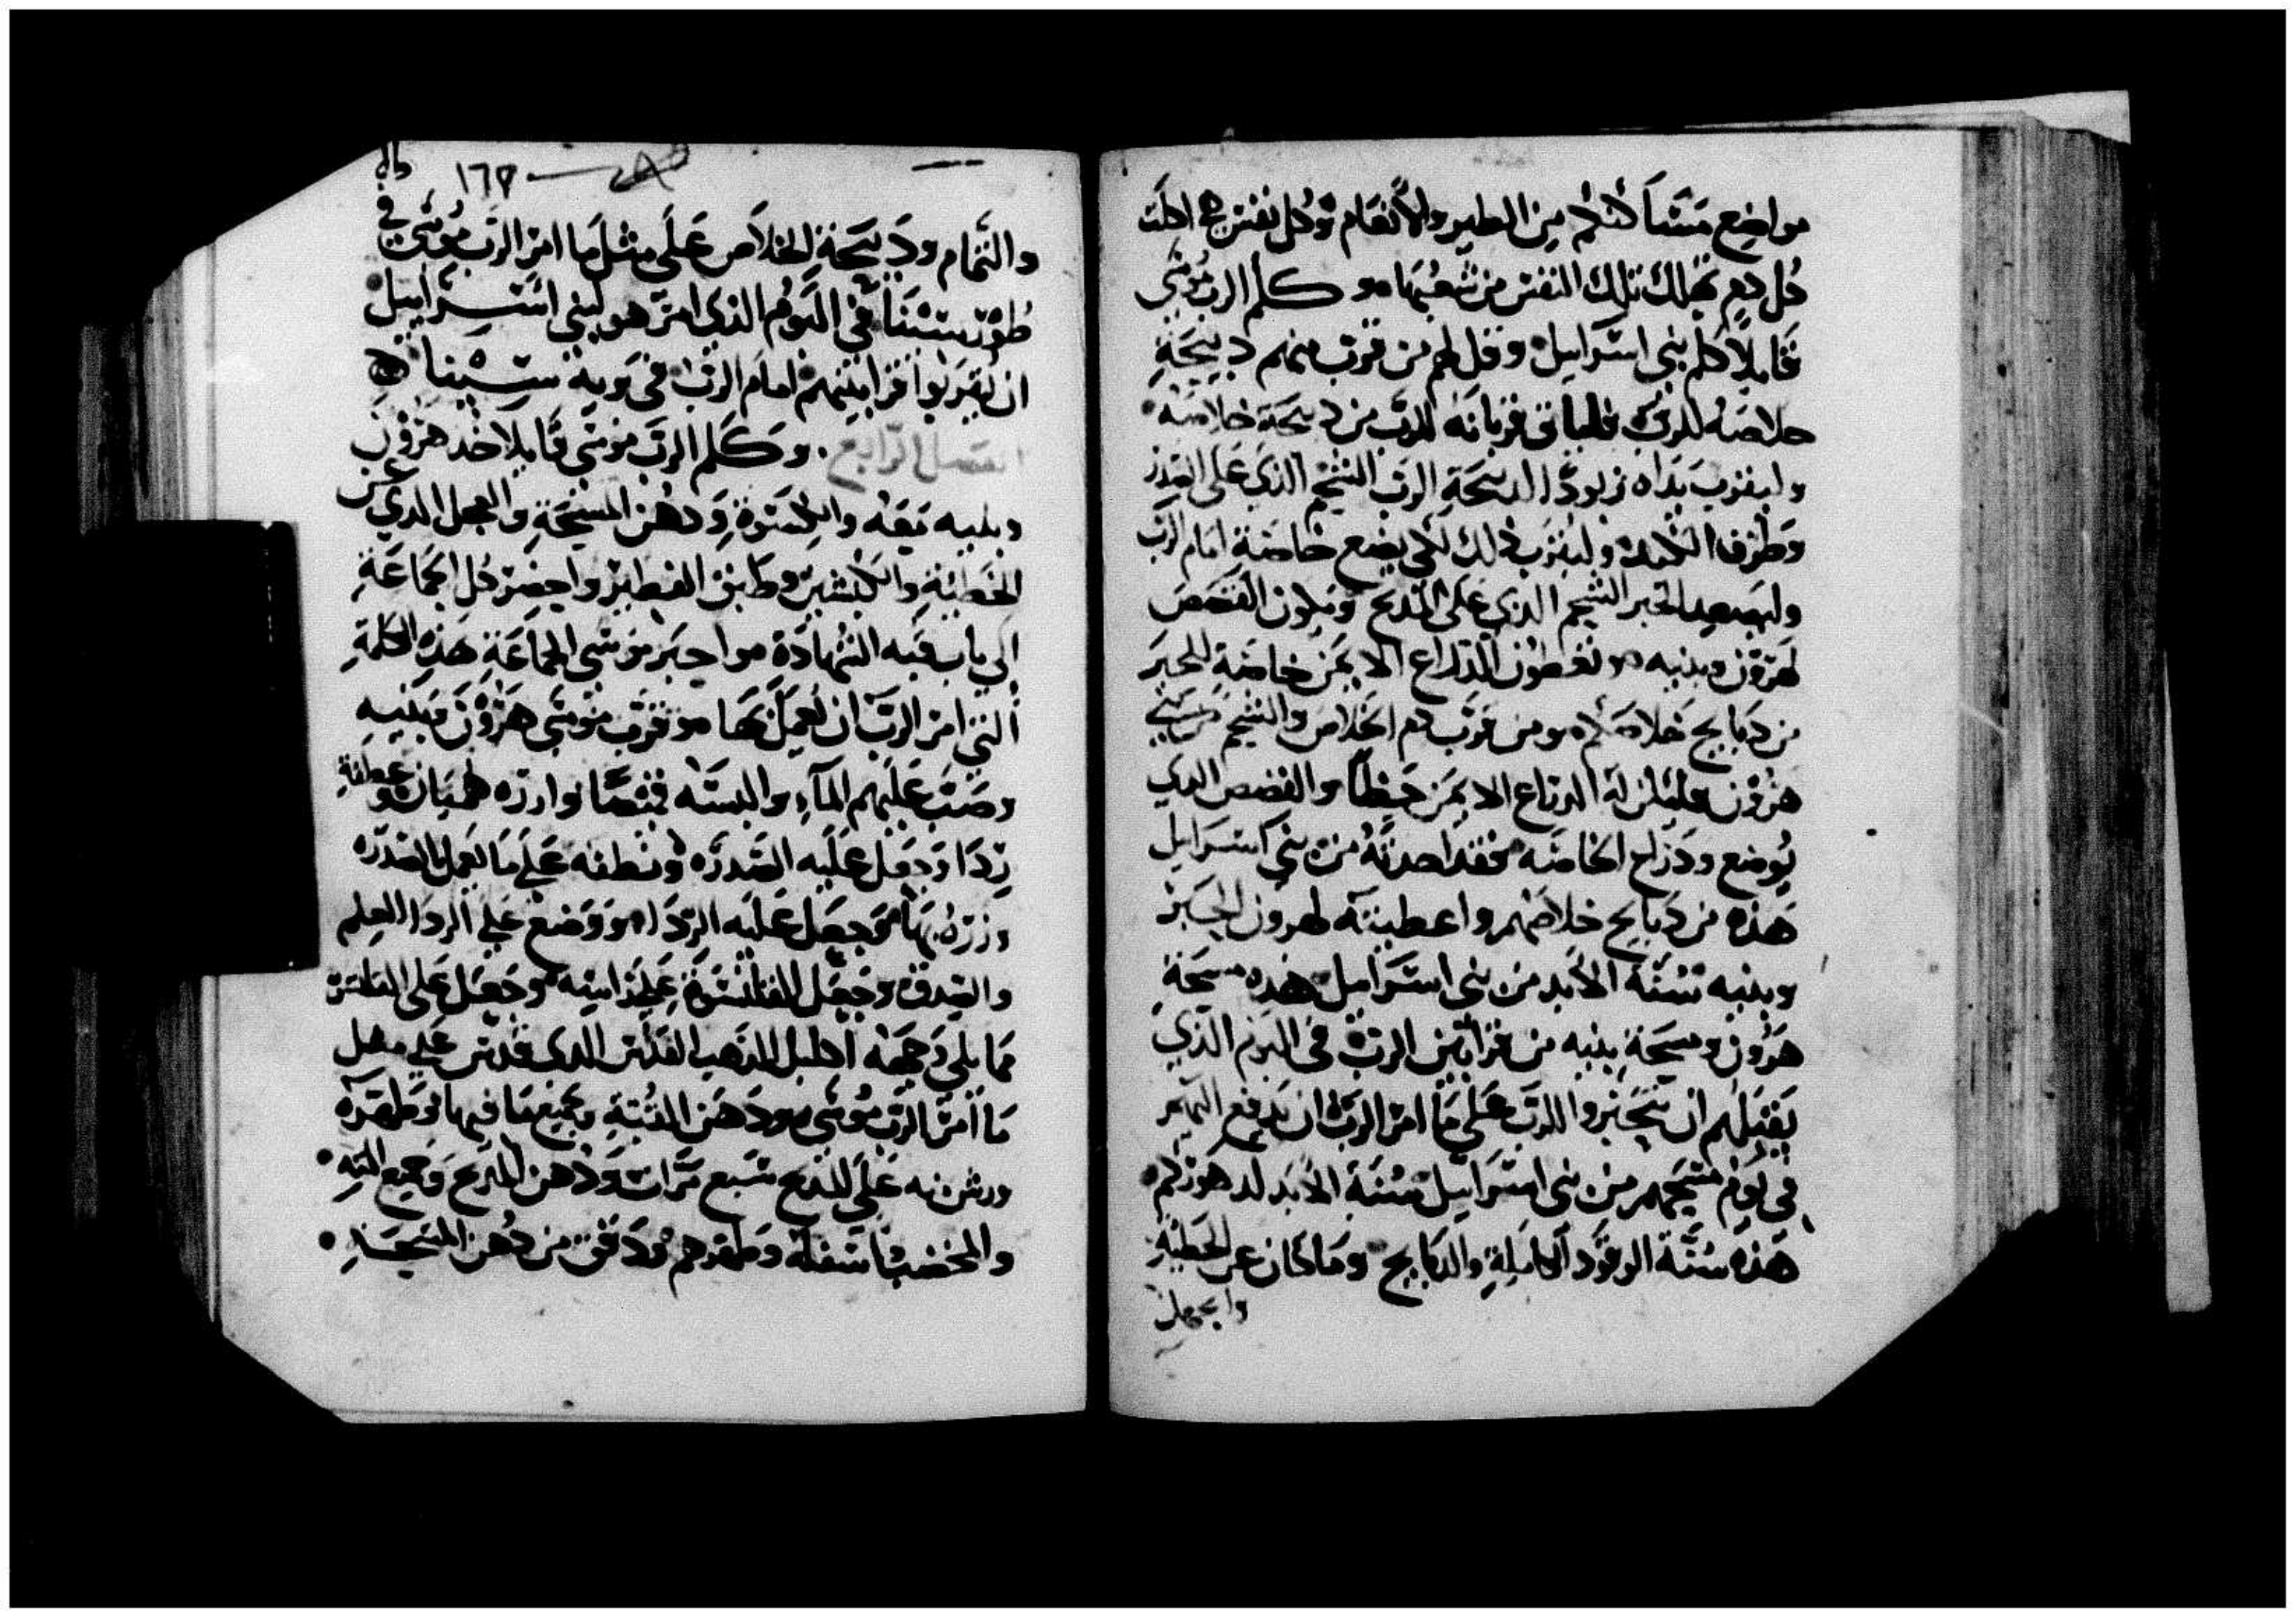 مواضع مساكنكم من الطير والانعام وكل نفس اكلت
كل دم تهلك تلك النفس من شعبها وكلم الرب موسى
قايلا كلم بني اسرايل وقل لهم من قرب منهم دبيحة
خلاصه للرب فلياتي قربانه للرب من دبيحة خلاصه
وليقرب يداه الدبيحة الرب الشحم الذي على القدر
وطرف الكبد وليقرب ذلك لكي يضع خاصة امام الرب
وليصعد الحبر الشحم الذي على المدبح ويكون القصص
لهرون وبنيه وتعطون الذراع الايمن خاصة للحبر
من دبايح خلاصكم ومن قرب دم الخلاص والشحم من بني
هرون فليكن له الدراع الايمن حظا والقصص الذي
يوضع ودراع الخاصه فقد اخدته من بني اسرايل
هذه من دبايح خلاصهم واعطيته لهرون الحبر
وبنيه سنة الابد من بني اسرايل هذه مسحة
هرون ومسحة بنيه من قرابين الرب في اليوم الذي
يقبلهم ان يتحبروا للرب على ما امر الرب ان يدفع اليهم
في يوم مسحهم من بني اسرايل سنة الابد لدهوركم
هذه سنة الوقود الكاملة والدبايح وما كان عن الخطية
١٦٧
والتمام ودبيحة الخلاص على مثل ما امر الرب موسى في
طور سينا في اليوم الذي امر هو لبني اسرايل
ان يقربوا قرابينهم امام الرب في برية سينا
الفصل الرابع وكلم الرب موسى قايلا خد هرون
وبنيه معه والكسوة ودهن المسحة والعجل الذي عن
الخطية والكبشين وطابق الفطير واحضر كل الجماعة
الى باب قبه الشهادة واخبر موسى الجماعة هذه الكلمة
التي امر الرب ان تعمل بها وقرب موسى هرون وبنيه
وصب عليهم الماء والبسه قميصا وازره
ردا وجعل عليه الصدره ونطقه على ما تعمل الصدره
وزره بها وجعل عليه الردا ووضع على الردا العلم
والصدق وجعل القلنسوة على راسه وجعل على القلنسوة
مما يلي وجهه اكليل الذهب القدس الذي قدس على مثل
ما امر الرب موسى ودهن القبة وجميع ما فيها وطهره
ورش منه على المدبح سبع مرات ودهن المدبح وجميع انيته
والمخضب اسفله وطهرهم ودفق من دهن المسحة